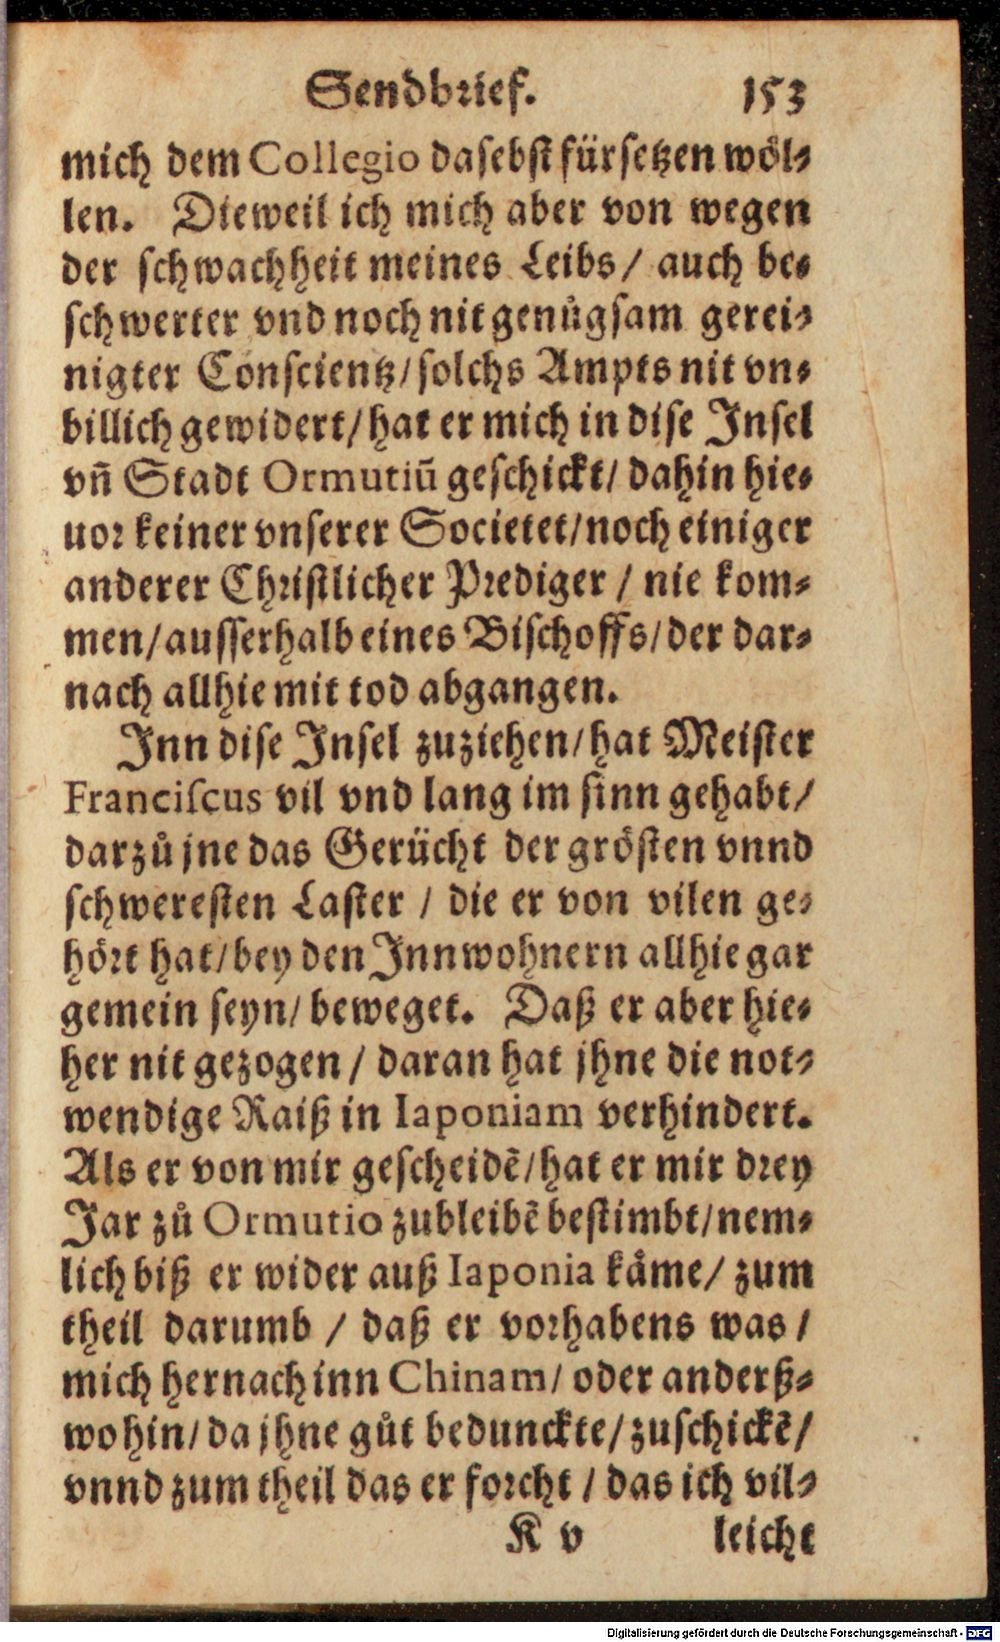 Sendbrief. 153
mich dem Collegio dasebst fürsetzen wöl⸗
len. Dieweil ich mich aber von wegen
der schwachheit meines Leibs/ auch be⸗
schwerter vnd noch nit genůgsam gerei⸗
nigter Conscientz/solchs Ampts nit vn⸗
billich gewidert/hat er mich in dise Insel
vñ Stadt Ormutiū geschickt/ dahin hie⸗
uor keiner vnserer Societet/noch einiger
anderer Christlicher Prediger / nie kom⸗
men/ausserhalb eines Bischoffs/der dar⸗
nach allhie mit tod abgangen.
Inn dise Insel zuziehen/hat Meister
Franciscus vil vnd lang im sinn gehabt/
darzů jne das Gerücht der grösten vnnd
schweresten Laster / die er von vilen ge⸗
hört hat/bey den Innwohnern allhie gar
gemein seyn/ beweget. Daß er aber hie⸗
her nit gezogen / daran hat jhne die not⸗
wendige Raiß in Iaponiam verhindert.
Als er von mir gescheidē/hat er mir drey
Jar zů Ormutio zubleibē bestimbt/nem⸗
lich biß er wider auß Iaponia kåme/ zum
theil darumb / daß er vorhabens was /
mich hernach inn Chinam/ oder anderß⸗
wohin/da jhne gůt bedunckte/zuschickē/
vnnd zum theil das er forcht / das ich vil⸗
K v leicht
Digitalisierung gefördert durch die Deutsche Forschungsgemeinschaft - DFG